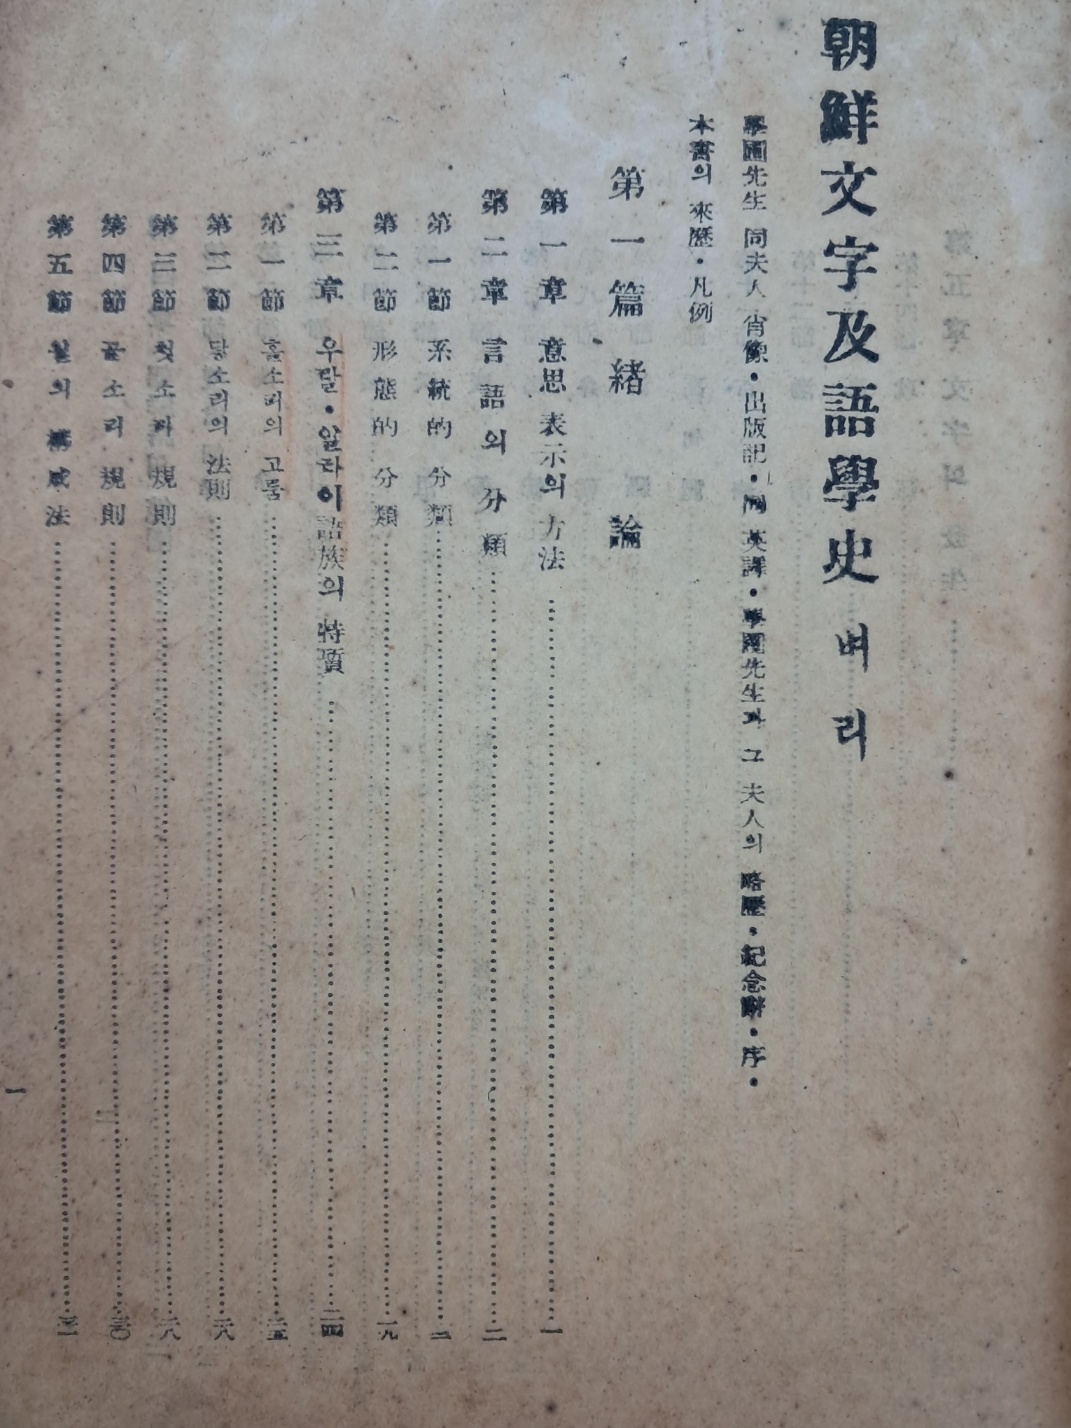 朝鮮文字及語學史 벼리
學圃先生 同夫人 肖像・出版記・同 英譯・學圃先生과 그 夫人의 略歷・紀念辭・序・
本書의 來歷・凡例
第一篇 緖論
第一章 意思表示의 方法 一
第二章 言語의 分類 二
第一節 系統的 分類
第二節 形態的 分類 一九
第三章 우랄・알라이語族의 特質 二四
第一節 홀소리의 고룸 二五
第二節 닿소리의 法則
第三節 첫소리 規則 二八
第四節 끝소리 規則 三〇
第五節 월의 構成法 三一
一